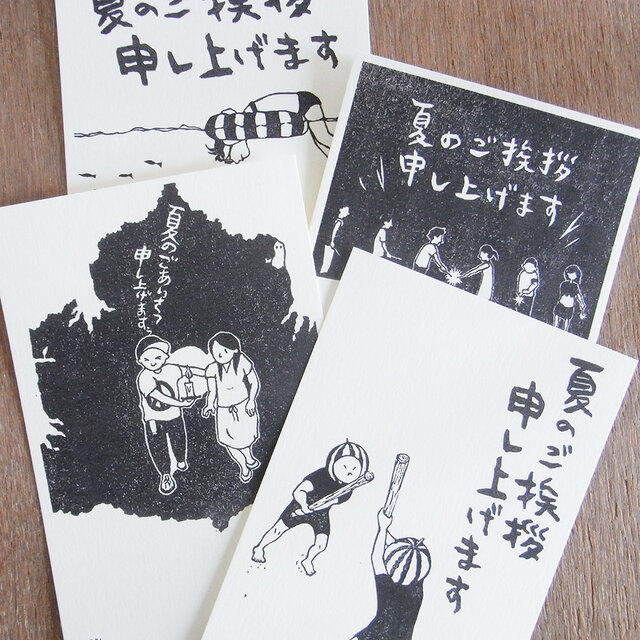 夏のご挨拶
申し上げます
夏のご挨拶
申し上げます
夏のごあいさつ
申し上げます
夏のご挨拶
申し上げます